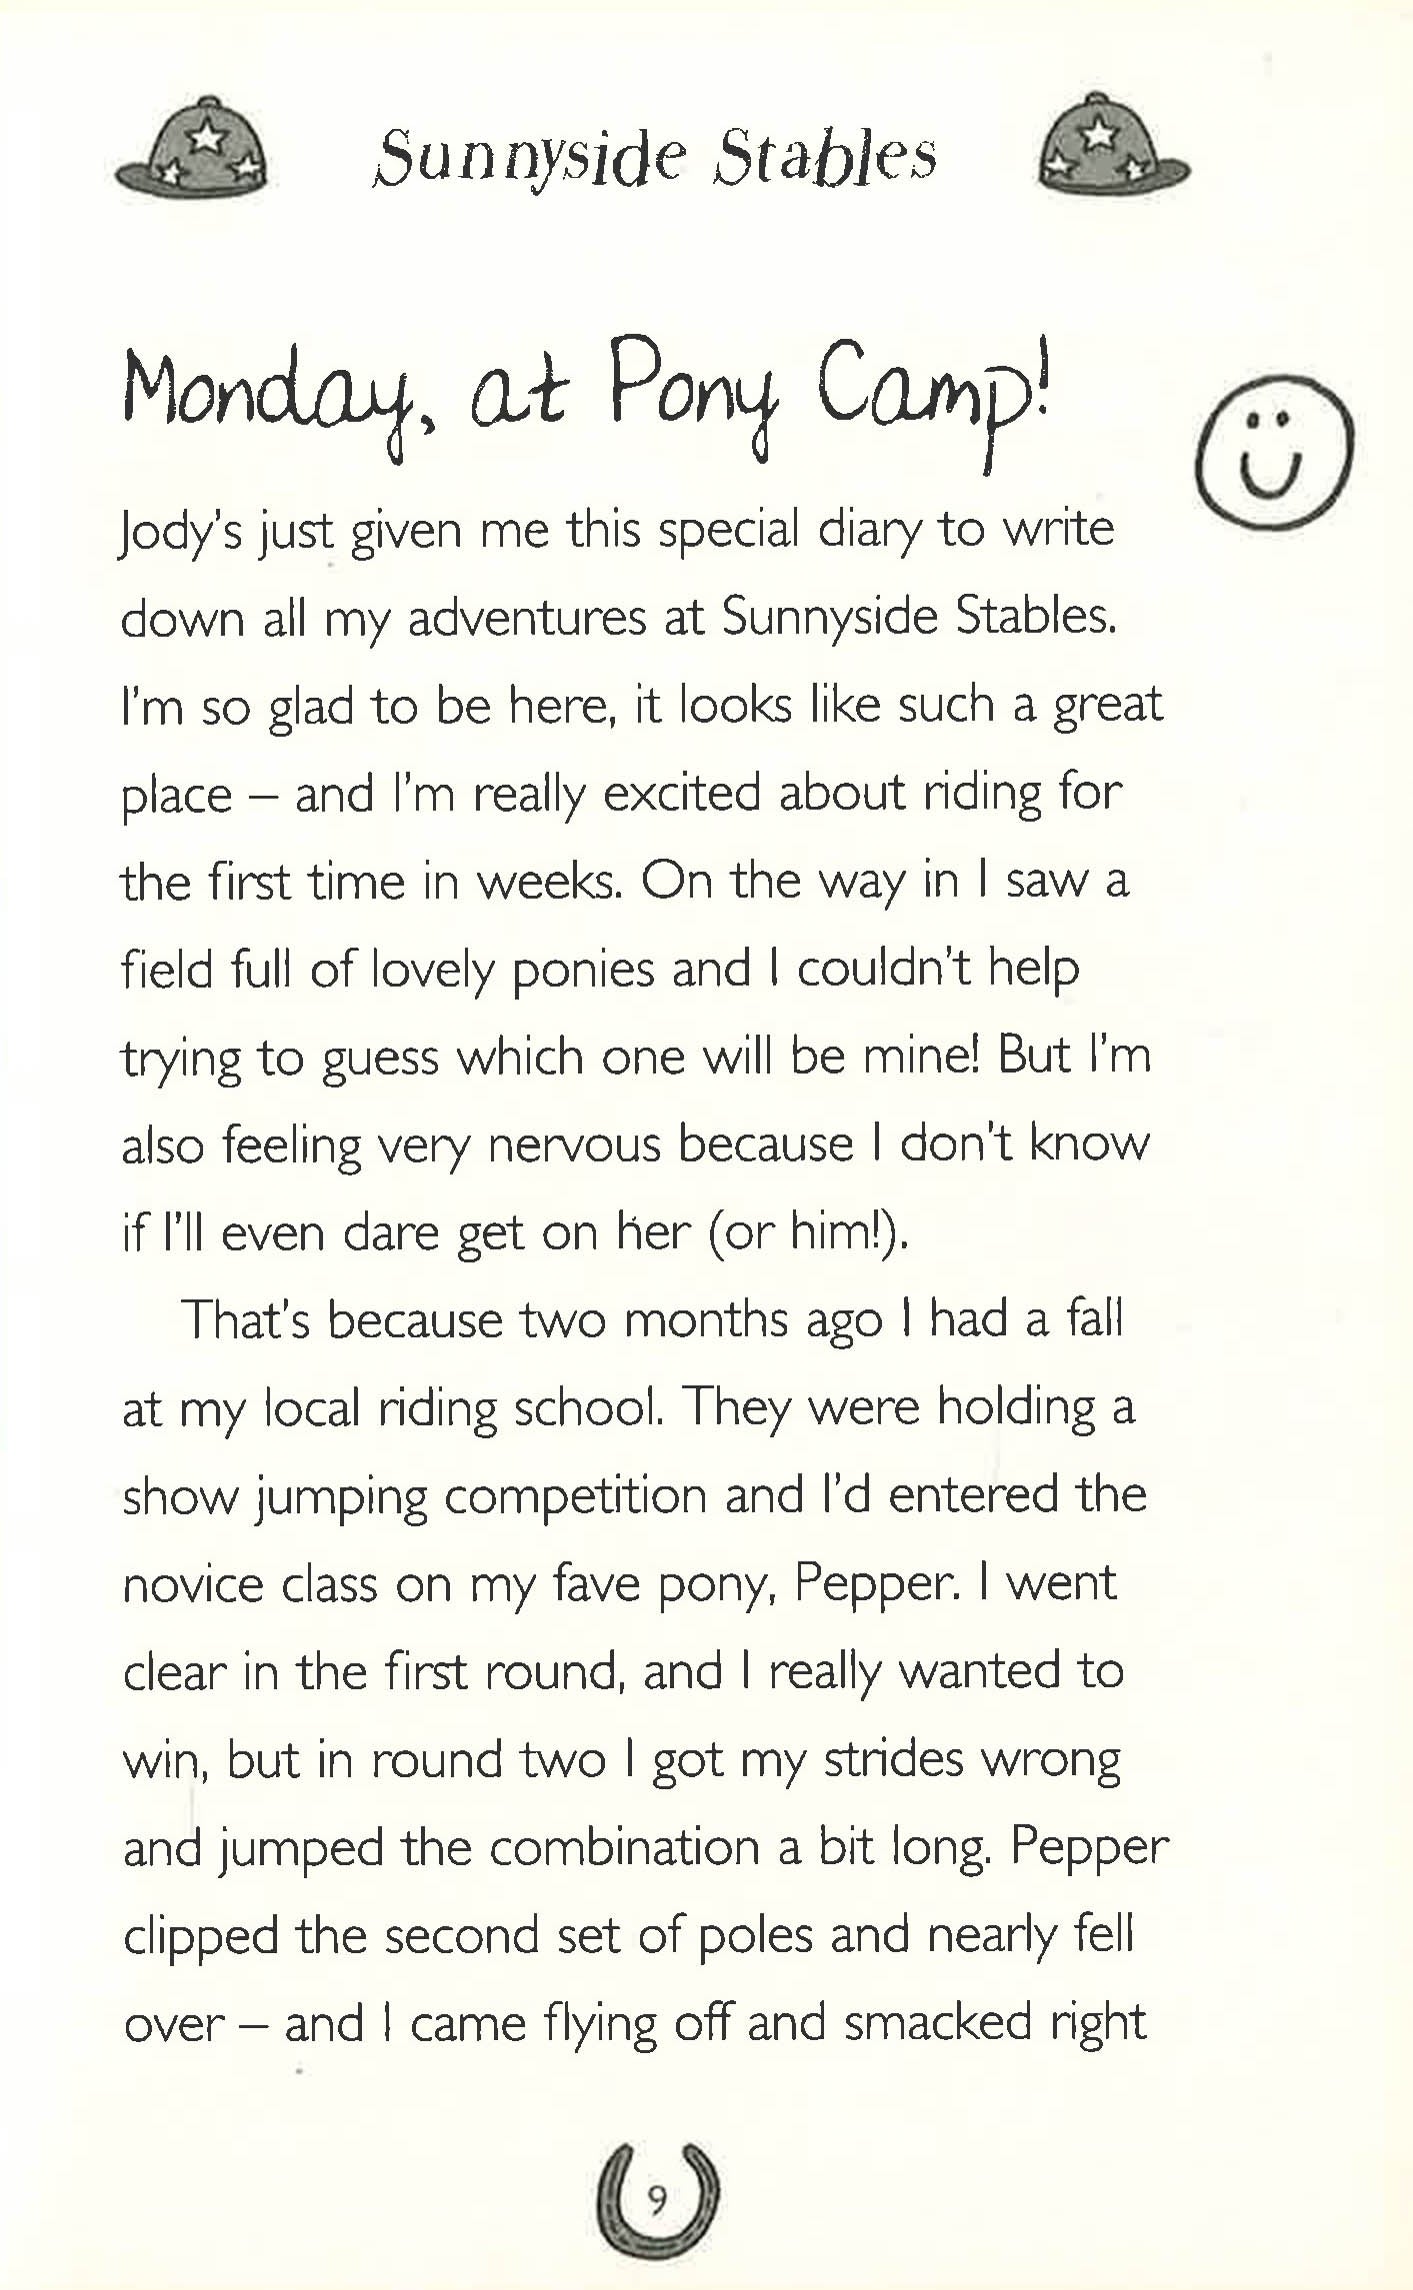 Sunnyside Stables
Monday, at Pony Camp!
Jody's just given me this special diary to write
down all my adventures at Sunnyside Stables.
I'm so glad to be here, it looks like such a great
place – and I'm really excited about riding for
the first time in weeks. On the way in I saw a
field full of lovely ponies and I couldn't help
trying to guess which one will be mine! But I'm
also feeling very nervous because I don't know
if I'll even dare get on her (or him!).
That's because two months ago I had a fall
at my local riding school. They were holding a
show jumping competition and I'd entered the
novice class on my fave pony, Pepper. I went
clear in the first round, and I really wanted to
win, but in round two I got my strides wrong
and jumped the combination a bit long. Pepper
clipped the second set of poles and nearly fell
over – and I came flying off and smacked right
9